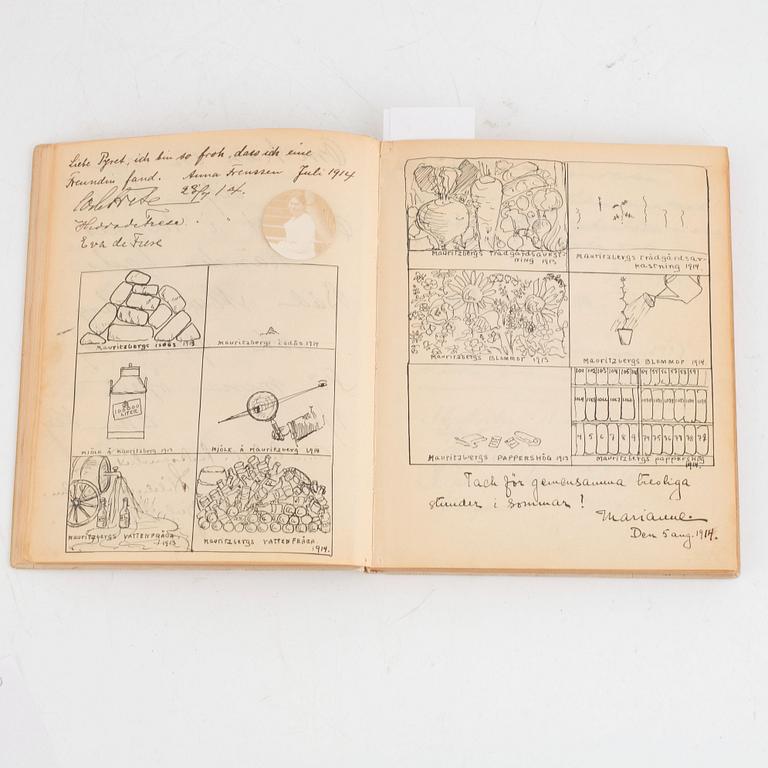 Liebe Pyret, ich bin so froh, dass ich eine
Freundin fand. Anna Frenssen Juli 1914
28/7 14.
Eva de Frese
Mauritzbergs isdös 1913
Mauritzbergs isdös 1914
100000 LITER
MJÖLK Å MAURITZBERG 1913
MJÖLK Å MAURITZBERG 1914
MAURITZBERGS VATTENFRÅGA
1913
MAURITZBERGS VATTENFRÅGA
1914.
MAURITZBERGS TRÄDGÅRDSAVKAST-
NING 1913
MAURITZBERGS TRÄDGÅRDSAV-
KASTNING 1914.
MAURITZBERGS BLOMMOR 1913
MAURITZBERGS BLOMMOR 1914
MAURITZBERGS PAPPERSHÖG 1913
101 102 103
4 5 6 7 8 9 74 75 76 77 78
MAURITZBERGS PAPPERSHÖG
1914.
Tack för gemensamma treoliga
stunder i sommar!
Marianne.
Den 5 aug. 1914.